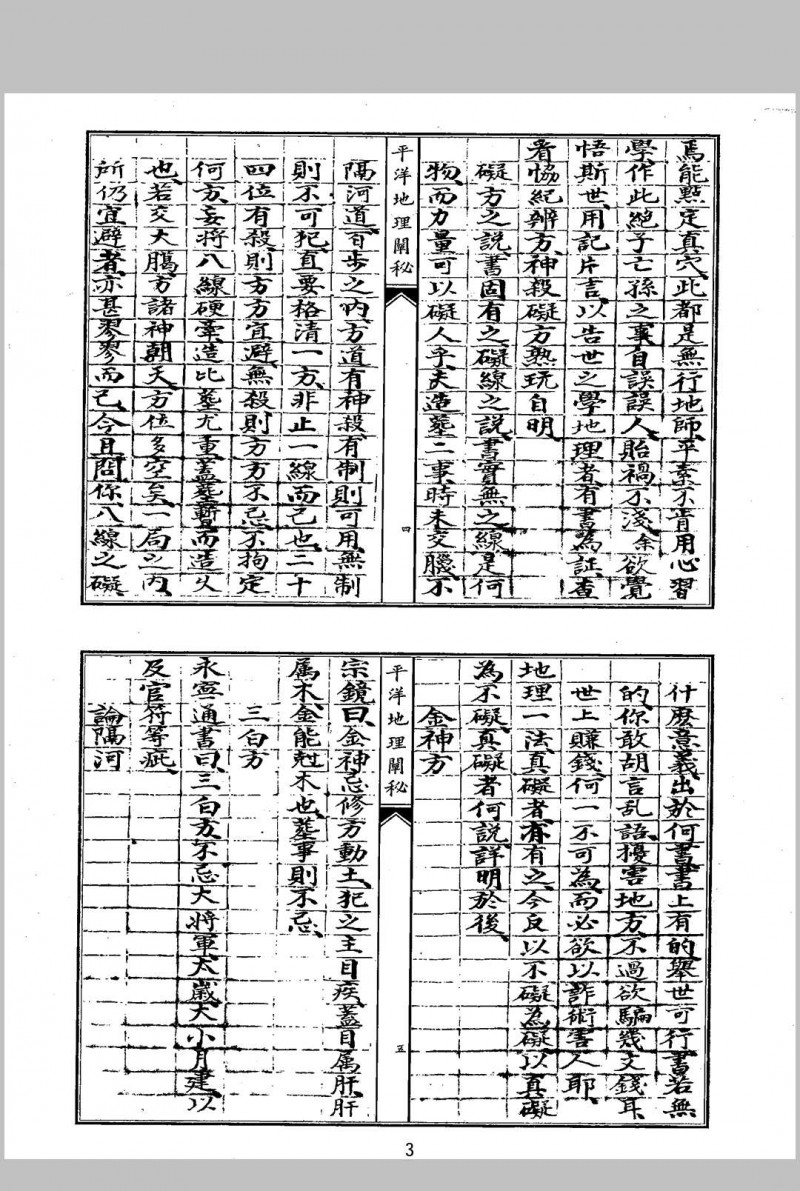 焉能點定真穴、此都是無行地師、平素不肯用心習
學、作此絕子亡孫之事、自誤誤人、貽禍不淺、余欲覺
悟斯世、用記片言、以告世之學地理者、有書為証、查
看協紀辨方、神殺礙方、熟玩自明、
礙方之說、書固有之、礙線之說、書實無之、線是何
物、而力量可以礙人乎、夫造葬二事、時未交臘、不
平洋地理闡秘
四
隔河道、百步之內、方道有神殺、有制則可用、無制
則不可犯、直要格清一方、非止一線而已也、二十
四位有殺、則方方宜避、無殺、則方方不忌、不拘定
何方、妄將八線硬牽、造比葬尤重、蓋葬暫而造久
也、若交大臈、方諸神朝天、方位多空矣、一局之內、
所仍宜避者、亦甚寥寥而已、今且問你八線之礙
什麼意義、出於何書、書上有的、舉世可行、書若無
的、你敢胡言亂語、擾害地方、不過欲騙幾文錢耳、
世上賺錢、何一不可為、而必欲以詐術害人耶、
地理一法、真礙者、亦有之、今反以不礙為礙、以真礙
為不礙、真礙者何、說詳明於後、
金神方
平洋地理闡秘
五
宗鏡曰、金神忌修方動土、犯之主目疾、蓋目属肝、肝
属木、金能尅木也、葬事則不忌、
三白方
永寧通書曰、三白方、不忌大將軍太歲大小月建、以
及官符等疵、
論隔河
3